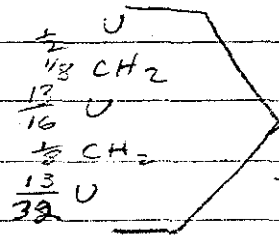 1/2 U
1/8 CH2
17/16 U
1/8 CH2
13/32 U